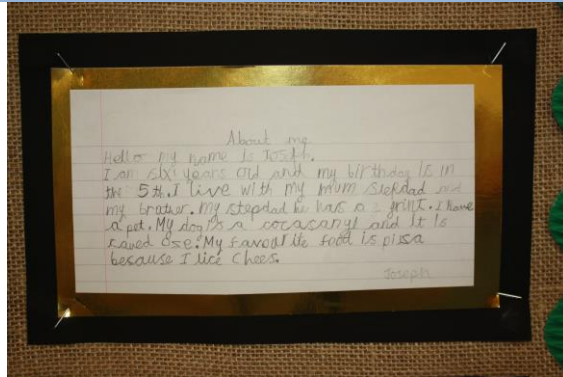 About me
Hello my name is Joseph.
I am six years old and my birthday is in
the 5th. I live with my mum stepdad and
my brather. My stepdad he has a grint. I have
a pet. My dog is a cocasanyl and it is
caued ose. My favourite food is pissa
because I lice Chees.
Joseph